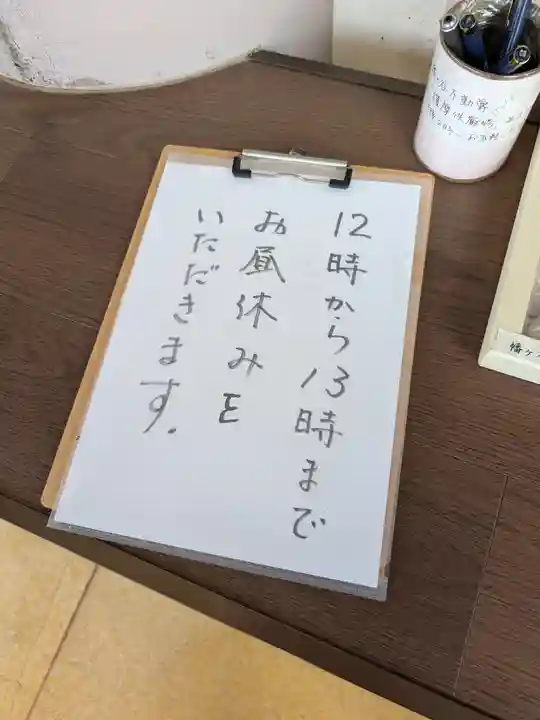 12時から13時まで
お昼休みを
いただきます.
不動尊
幡ヶ